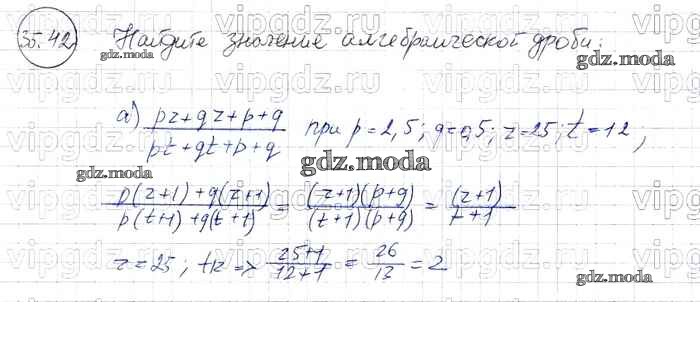 35.42 Найдите значение алгебраической дроби:
а) (pz+qz+p+q)/(pt+qt+p+q) при p=2,5; q=0,5; z=25; t=12;
(p(z+1)+q(z+1))/(p(t+1)+q(t+1)) = ((z+1)(p+q))/((t+1)(p+q)) = (z+1)/t+1
z=25; t12 => (25+1)/(12+1) = 26/13 = 2
gdz.moda
gdz.moda
gdz.moda
gdz.moda
gdz.moda
vipgdz.ru